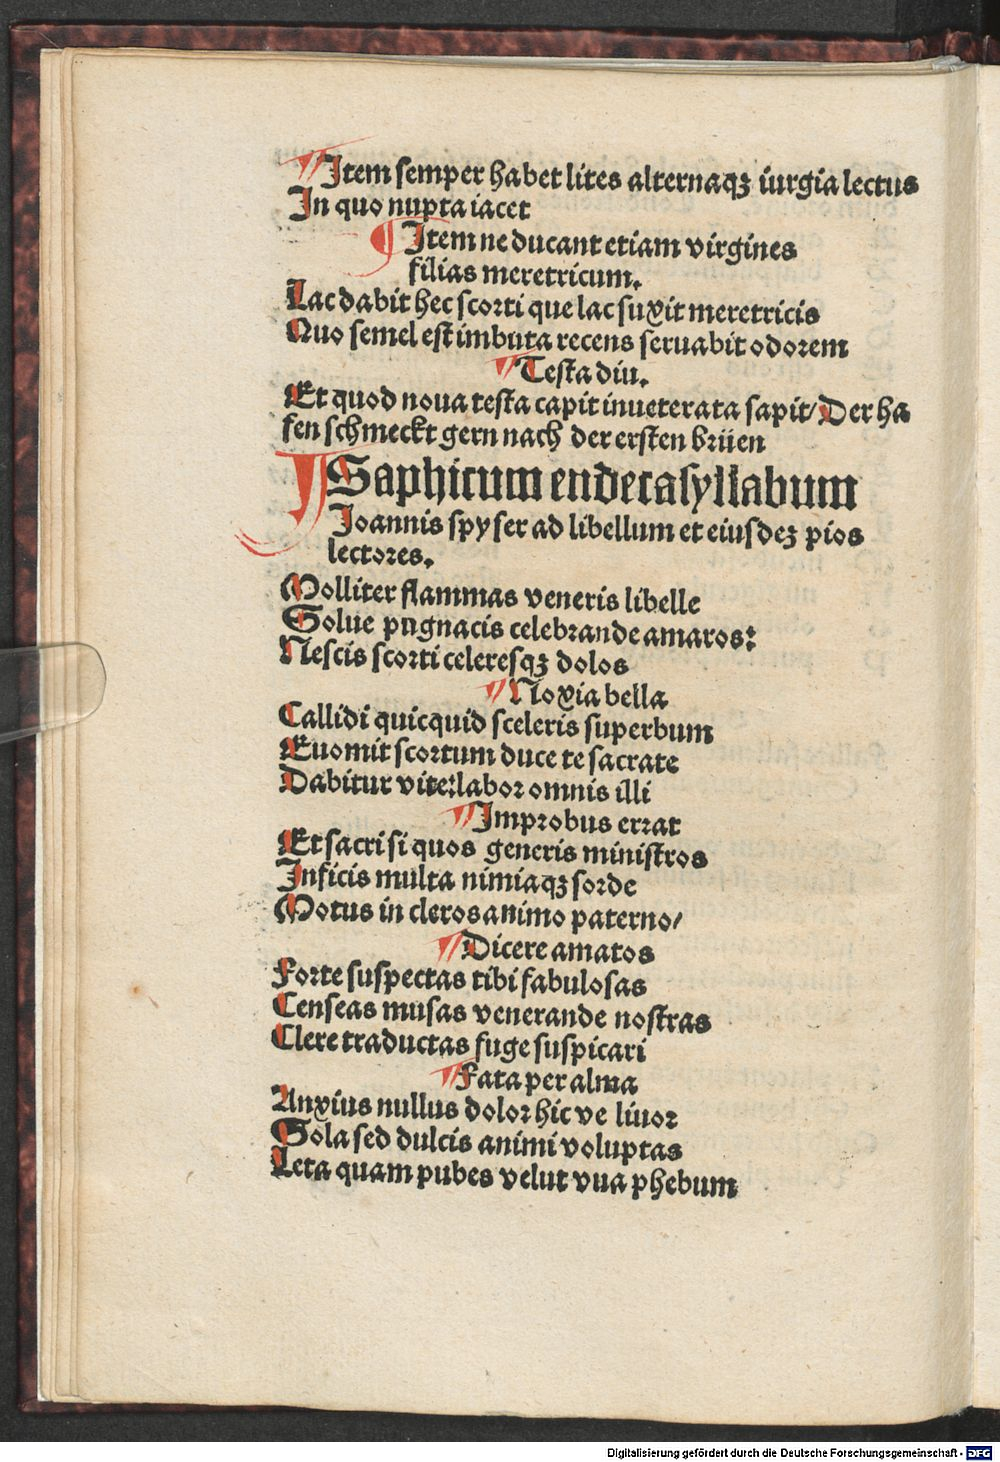 Item semper habet lites alternaqꝫ iurgia lectus
In quo nupta iacet
Item ne ducant etiam virgines
filias meretricum.
Lac dabit hec scorti que lac suxit meretricis
Quo semel est imbuta recens seruabit odorem
Testa diu.
Et quod noua testa capit inueterata sapit/ Der ha
fen schmeckt gern nach der ersten brüen
Saphicum endecasyllabum
Joannis spyser ad libellum et eiusdeꝫ pios
lectores.
Molliter flammas veneris libelle
Solue pugnacis celebrande amaros:
Nescis scorti celeresqꝫ dolos
Noxia bella
Callidi quicquid sceleris superbum
Euomit scortum duce te sacrate
Dabitur vite: labor omnis illi
Improbus errat
Et sacri si quos generis ministros
Inficis multa nimiaqꝫ sorde
Motus in cleros animo paterno/
Dicere amatos
Forte suspectas tibi fabulosas
Censeas musas venerande nostras
Clere traductas fuge suspicari
Fata per alma
Anxius nullus dolor hic ve liuor
Sola sed dulcis animi voluptas
Leta quam pubes velut vua phebum
Digitalisierung gefördert durch die Deutsche Forschungsgemeinschaft - DFG